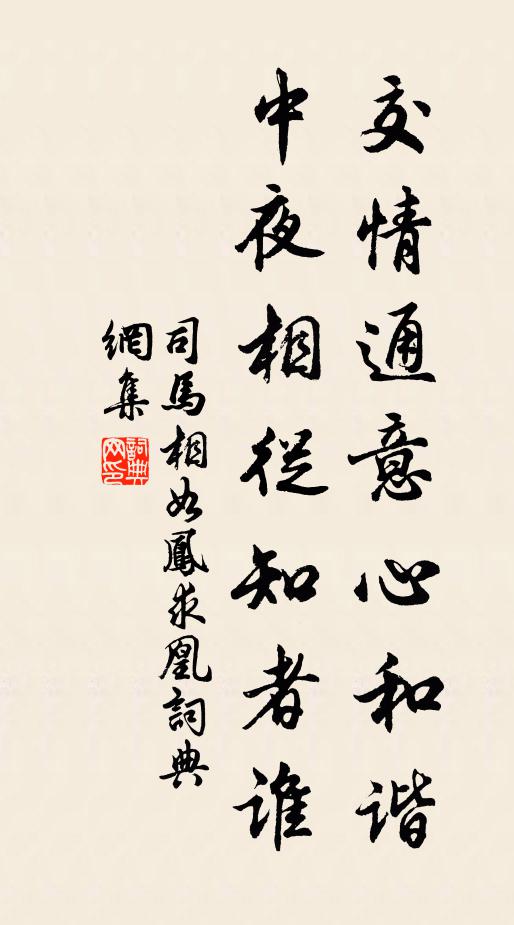 交情通意心和谐
中夜相從知者誰
司馬相如鳳求凰詞典
網集
詞典網印